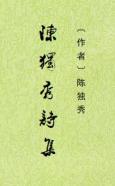 〔作者〕陈独秀
陳獨秀詩集